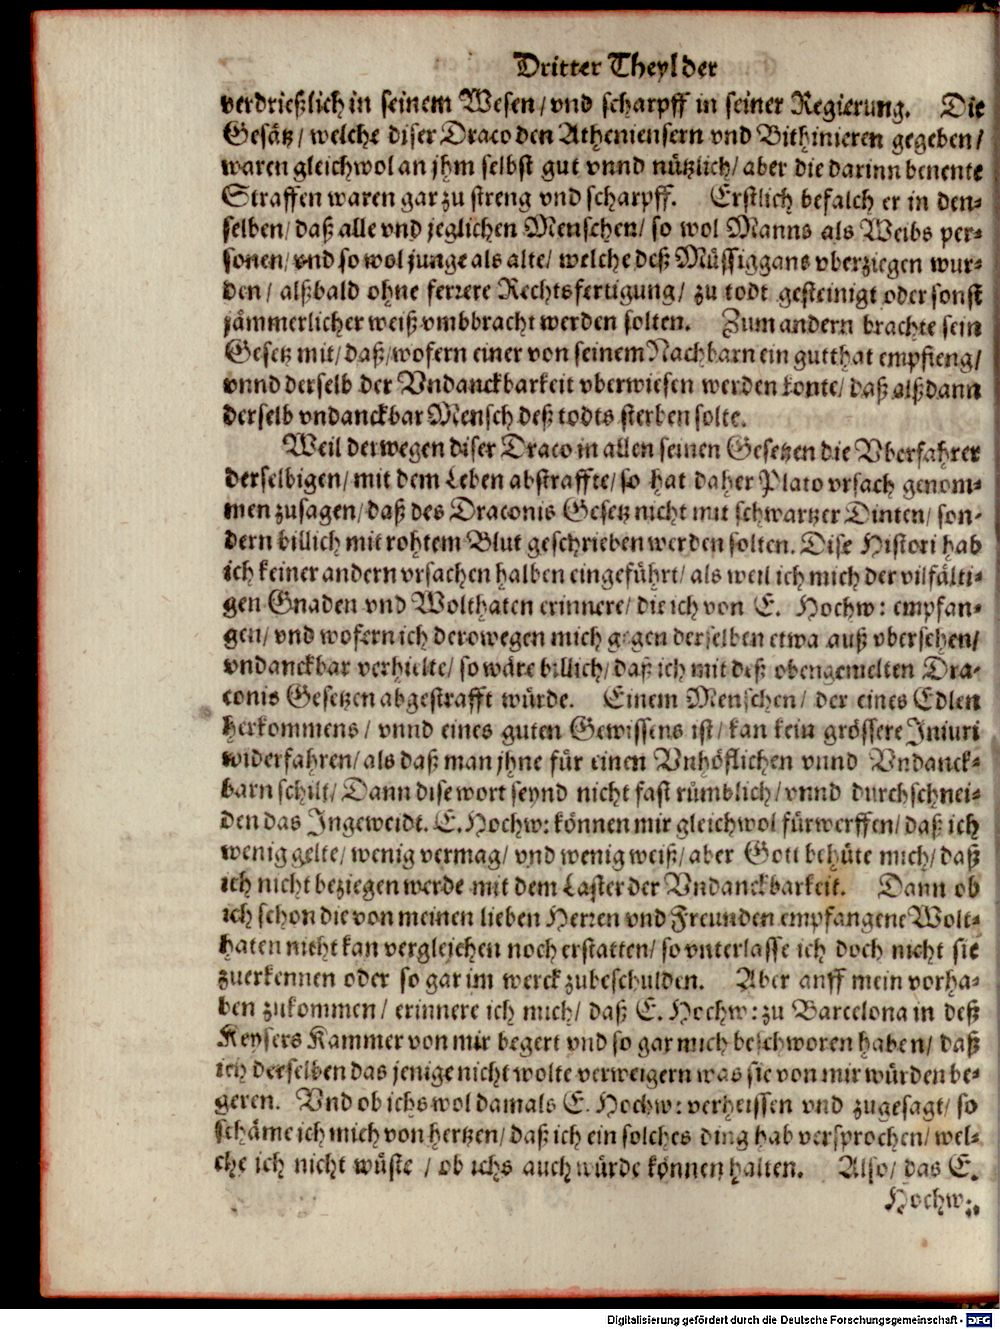 Dritter Theyl der
verdrießlich in seinem Wesen/ vnd scharpff in seiner Regierung. Die
Gesätz/ welche diser Draco den Atheniensern vnd Bithinieren gegeben/
waren gleichwol an jhm selbst gut vnnd nützlich/ aber die darinn benente
Straffen waren gar zu streng vnd scharpff. Erstlich befalch er in den-
selben/ daß alle vnd jeglichen Menschen/ so wol Manns als Weibs per-
sonen/ vnd so wol junge als alte/ welche deß Müssiggans vberziegen wur-
den/ alßbald ohne ferrere Rechtsfertigung/ zu todt gesteinigt oder sonst
jämmerlicher weiß vmbbracht werden solten. Zum andern brachte sein
Gesetz mit/ daß/ wofern einer von seinem Nachbarn ein gutthat empfieng/
vnnd derselb der Vndanckbarkeit vberwiesen werden konte/ daß alßdann
derselb vndanckbar Mensch deß todts sterben solte.
Weil derwegen diser Draco in allen seinen Gesetzen die Vberfahrer
derselbigen/ mit dem Leben abstraffte/ so hat daher Plato vrsach genom-
men zusagen/ daß des Draconis Gesetz nicht mit schwartzer Dinten/ son-
dern billich mit rohtem Blut geschrieben werden solten. Dise Histori hab
ich keiner andern vrsachen halben eingeführt/ als weil ich mich der vilfälti-
gen Gnaden vnd Wolthaten erinnere/ die ich von E. Hochw: empfan-
gen/ vnd wofern ich derowegen mich gegen derselben etwa auß vbersehen/
vndanckbar verhielte/ so wäre billich/ daß ich mit deß obengemelten Dra-
conis Gesetzen abgestrafft würde. Einem Menschen/ der eines Edlen
herkommens/ vnnd eines guten Gewissens ist/ kan kein grössere Iniuri
widerfahren/ als daß man jhne für einen Vnhöflichen vnnd Vndanck-
barn schilt/ Dann dise wort seynd nicht fast rümblich/ vnnd durchschnei-
den das Ingeweidt. E. Hochw: können mir gleichwol fürwerffen/ daß ich
wenig gelte/ wenig vermag/ vnd wenig weiß/ aber Gott behüte mich/ daß
ich nicht beziegen werde mit dem Laster der Vndanckbarkeit. Dann ob
ich schon die von meinen lieben Herren vnd Freunden empfangene Wolt-
haten nicht kan vergleichen noch erstatten/ so vnterlasse ich doch nicht sie
zuerkennen oder so gar im werck zubeschulden. Aber auff mein vorha-
ben zukommen/ erinnere ich mich/ daß E. Hochw: zu Barcelona in deß
Keysers Kammer von mir begert vnd so gar mich beschworen haben/ daß
ich derselben das jenige nicht wolte verweigern was sie von mir würden be-
geren. Vnd ob ichs wol damals E. Hochw: verheissen vnd zugesagt/ so
schäme ich mich von hertzen/ daß ich ein solches ding hab versprochen/ wel-
che ich nicht wüste / ob ichs auch würde können halten. Also/ das E.
Hochw:
Digitalisierung gefördert durch die Deutsche Forschungsgemeinschaft - DFG